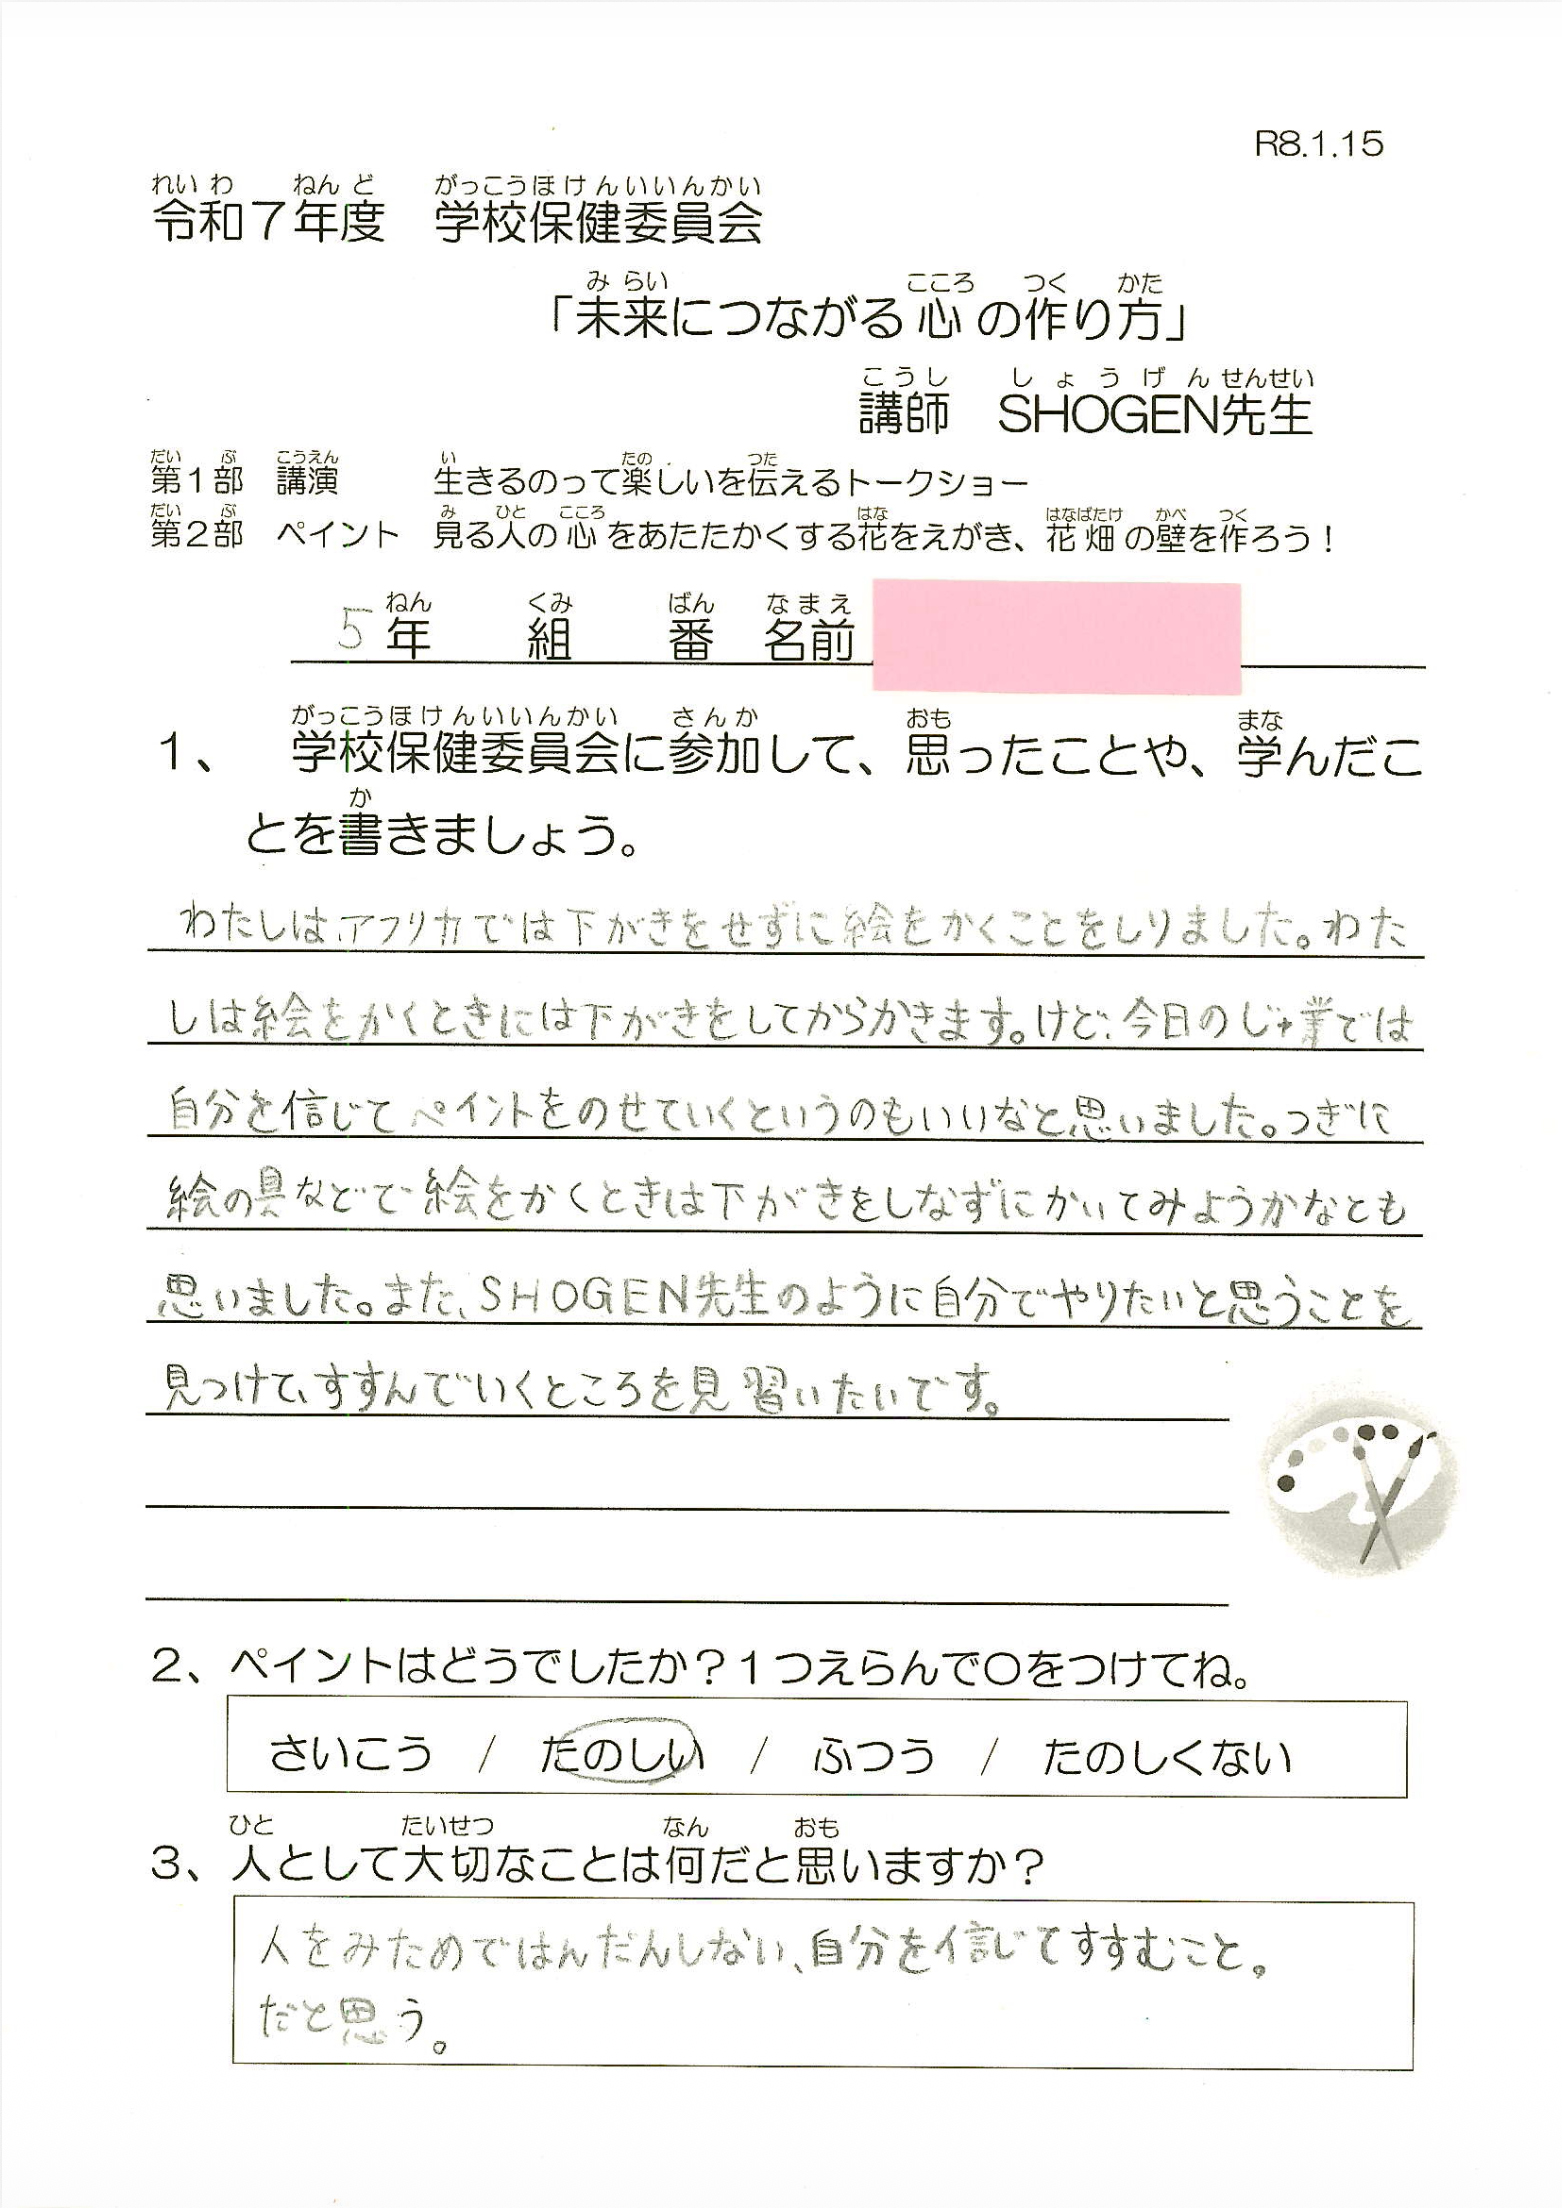 R8.1.15
れいわ ねんど がっこうほけんいいんかい
令和7年度 学校保健委員会
みらい こころ つく かた
「未来につながる心の作り方」
こうし しょうげんせんせい
講師 SHOGEN先生
だい ぶ こうえん い たの つた
第1部 講演 生きるのって楽しいを伝えるトークショー
だい ぶ み ひと こころ はな はなばたけ かべ つく
第2部 ペイント 見る人の心をあたたかくする花をえがき、花畑の壁を作ろう！
ねん くみ ばん なまえ
5年 組 番 名前
がっこうほけんいいんかい さんか おも まな
1、 学校保健委員会に参加して、思ったことや、学んだこ
か
とを書きましょう。
わたしはアフリカでは下がきをせずに絵をかくことをしりました。わた
しは絵をかくときには下がきをしてからかきます。けど、今日のじゅ業では
自分を信じてペイントをのせていくというのもいいなと思いました。つぎに
絵の具などで絵をかくときは下がきをしなずにかいてみようかなとも
思いました。また、SHOGEN先生のように自分でやりたいと思うことを
見つけて、すすんでいくところを見習いたいです。
2、ペイントはどうでしたか？1つえらんで〇をつけてね。
さいこう / たのしい / ふつう / たのしくない
ひと たいせつ なん おも
3、人として大切なことは何だと思いますか？
人をみためではんだんしない、自分を信じてすすむこと。
だと思う。